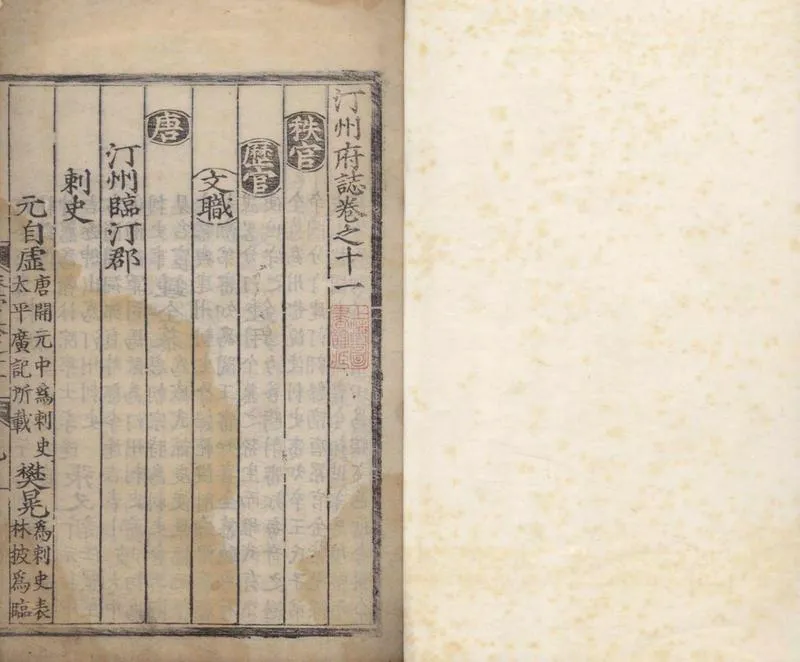 汀州府誌卷之十一
秩官
歷官
文職
唐
汀州臨汀郡
刺史
元自虛唐開元中爲刺史太平廣記所載樊晃爲刺史表林披爲臨